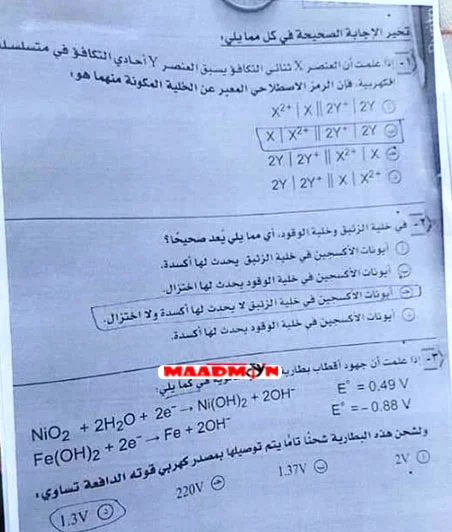 تخير الإجابة الصحيحة في كل مما يلي:
١- إذا علمت أن العنصر X ثنائي التكافؤ يسبق العنصر Y أحادي التكافؤ في متسلسلة
الكهربية، فإن الرمز الاصطلاحي المعبر عن الخلية المكونة منهما هو:
أ X²⁺ | X || 2Y⁺ | 2Y
ب X | X²⁺ || 2Y⁺ | 2Y
ج 2Y | 2Y⁺ || X²⁺ | X
د 2Y | 2Y⁺ || X | X²⁺
٢- في خلية الزئبق وخلية الوقود، أي مما يلي يُعد صحيحًا؟
أ أيونات الأكسجين في خلية الزئبق يحدث لها أكسدة.
ب أيونات الأكسجين في خلية الوقود يحدث لها اختزال.
ج أيونات الأكسجين في خلية الزئبق لا يحدث لها أكسدة ولا اختزال.
د أيونات الأكسجين في خلية الوقود يحدث لها أكسدة.
MAADMOYN
٣- إذا علمت أن جهود أقطاب بطارية في كما يلي:
NiO₂ + 2H₂O + 2e⁻ → Ni(OH)₂ + 2OH⁻ E° = 0,49 V
Fe(OH)₂ + 2e⁻ → Fe + 2OH⁻ E° = - 0.88 V
ولشحن هذه البطارية شحنًا تامًا يتم توصيلها بمصدر كهربي قوته الدافعة تساوي:
أ 2V ب 1.37V ج 220V د 1.3V